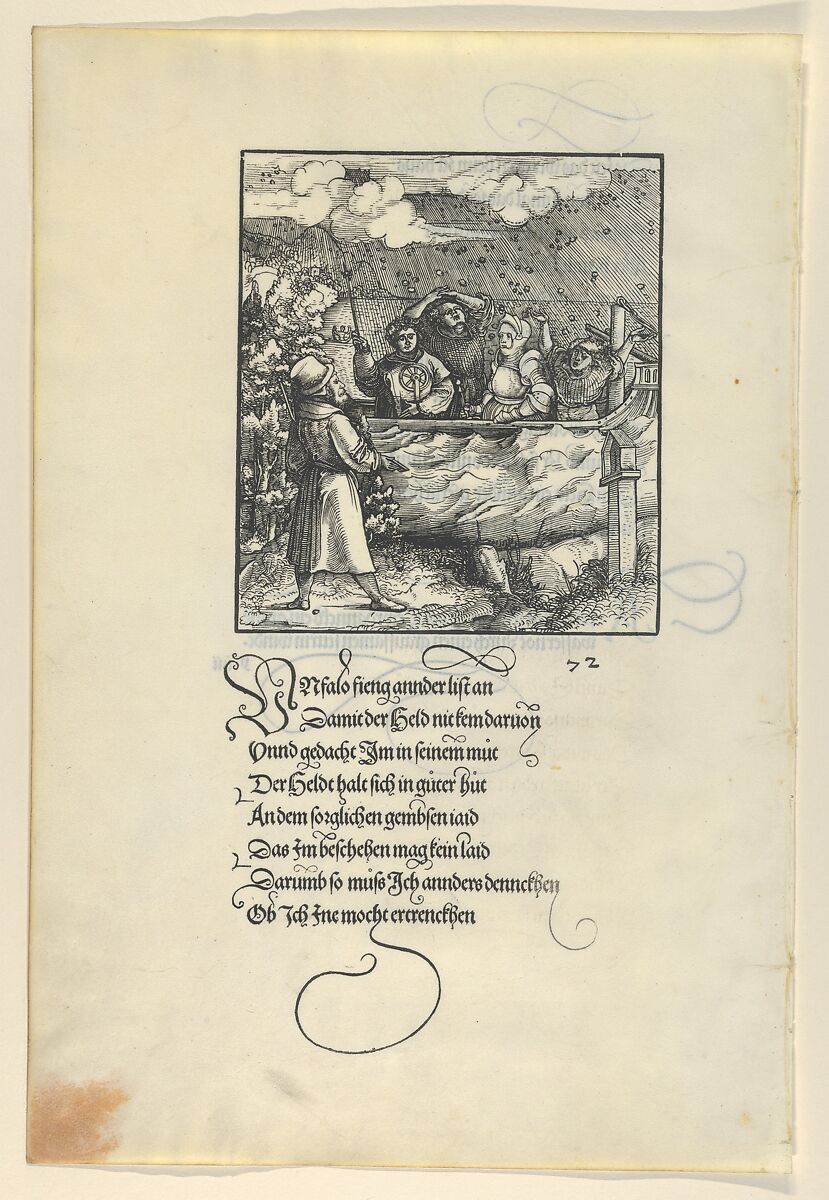 72
VNfalo fieng annder list an
Damit der Held nit kem daruon
Vnnd gedacht Im in seinem muͦt
Der Heldt halt sich in guͦter huͦt
An dem sorglichen gembsen iaid
Das Im beschehen mag kein laid
Darumb so muͦss Ich annders dennckhen
Ob Ich Ine mocht ertrenckhen